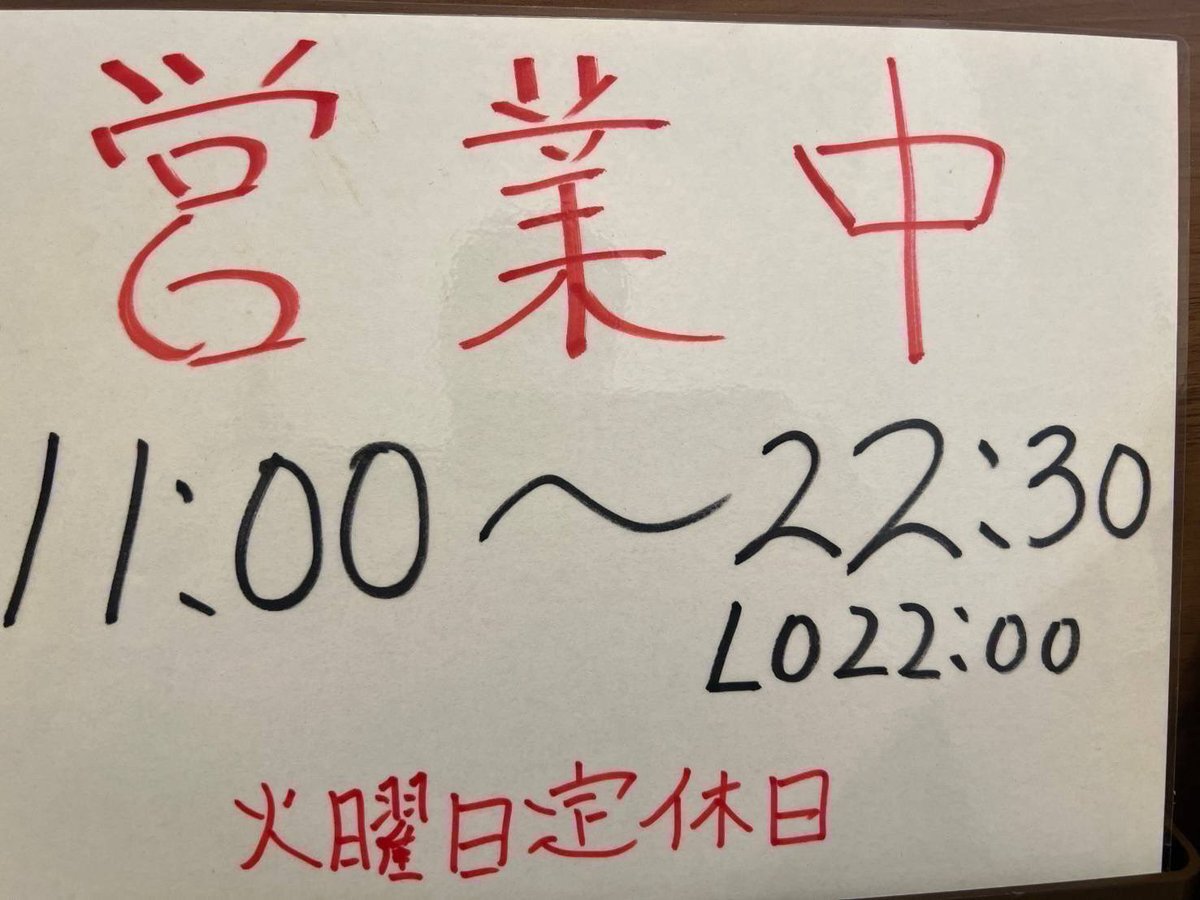 営業中
11:00〜22:30
LO22:00
火曜日定休日